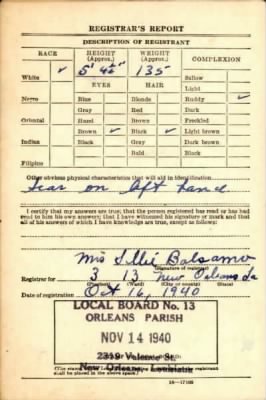 REGISTRAR'S REPORT
DESCRIPTION OF REGISTRANT
RACE HEIGHT (Approx.) WEIGHT (Approx.) COMPLEXION
White ✓ 5' 4½" 135 Sallow
EYES HAIR Light
Negro Blue Blonde Ruddy ✓
Gray Red Dark
Oriental Hazel Brown Freckled
Brown ✓ Black ✓ Light brown
Indian Black Gray Dark brown
Bald Black
Filipino
Other obvious physical characteristics that will aid in identification
Scar on left hand
I certify that my answers are true; that the person registered has read or has had
read to him his own answers; that I have witnessed his signature or mark and that
all of his answers of which I have knowledge are true, except as follows:
Mrs Lillie Balsamo
(Signature of registrar)
Registrar for 3 13 New Orleans La
Date of registration Oct 16, 1940
LOCAL BOARD No. 13
ORLEANS PARISH
NOV 14 1940
2319 Valence St.
New Orleans, Louisiana
(The stamp of
shall be placed in the above space.)
16—17105